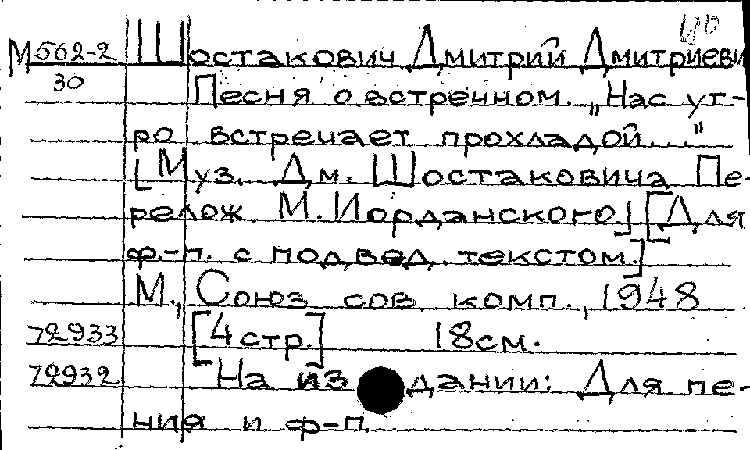 М 562-2 Шостакович Дмитрий Дмитриеви
30 Песня о встречном. „Нас ут-
ро встречает прохладой..."
[Муз. Дм. Шостаковича Пе-
релож. М. Иорданского] [Для
ф.-п. с подвед. текстом.]
М., Союз сов. комп., 1948
72933 [4 стр.] 18см.
72932 На издании: Для пе-
ния и ф-п.